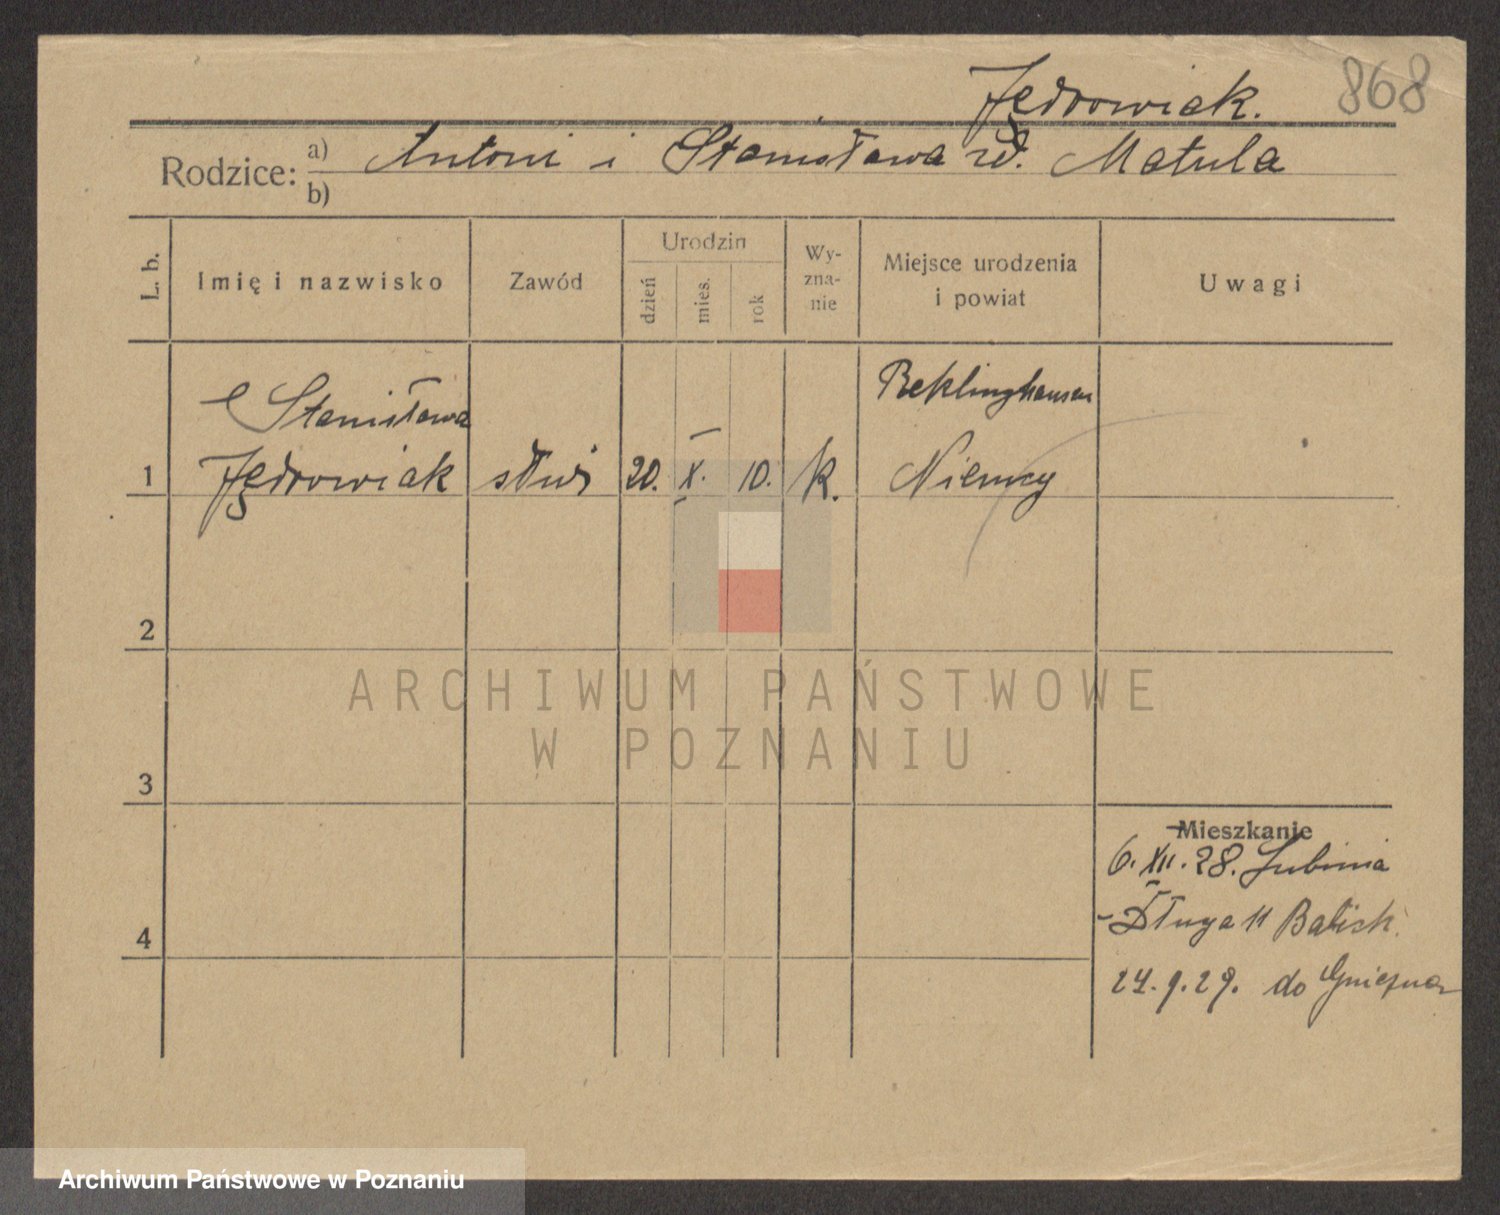 868
Jędrowiak.
Rodzice: a) Antoni i Stanisława zd. Matula
b)
L. b.
Imię i nazwisko
Zawód
Urodzin
dzień
mies.
rok
Wy-
zna-
nie
Miejsce urodzenia
i powiat
Uwagi
Stanisława
Reklinghausen
1 Jędrowiak służ 20. X. 10. k. Niemcy
2
ARCHIWUM PAŃSTWOWE
W POZNANIU
3
Mieszkanie
6. XII. 28. Lubinia
4
Długa 11
24. 9. 29. do Gniezna
Archiwum Państwowe w Poznaniu